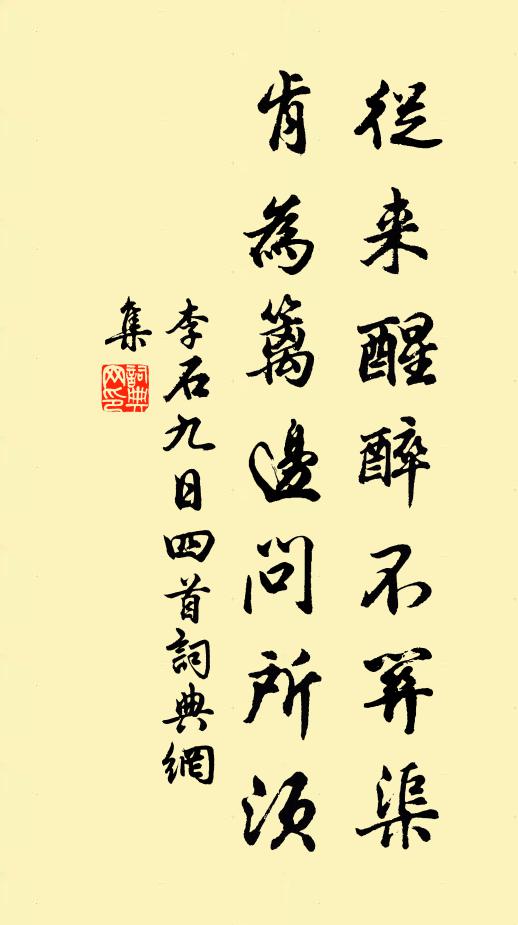 從来醒醉不算渠
肯為籬邊問所須
李石九日四首詞典網
集
詞典网印